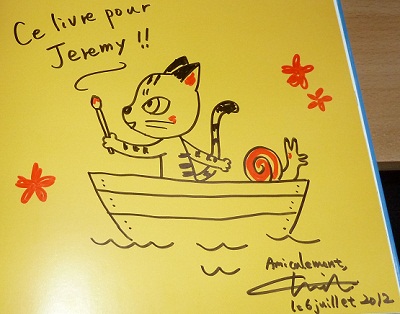 Ce livre pour
Jeremy !!
Amicalement,
le 6 juillet 2012